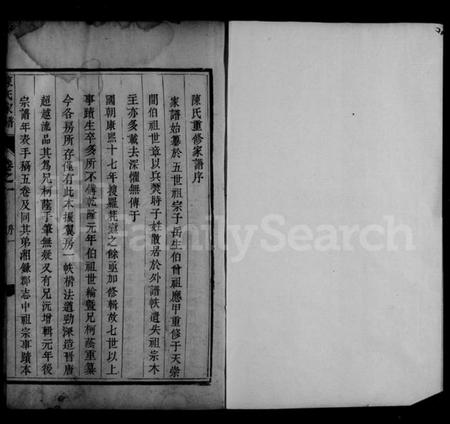 陳氏重修家譜序
家譜始纂於五世祖宗子岳生伯曾祖應甲重修于天崇
間伯祖世章以兵燹時子姓散居於外譜帙遺失祖宗木
主亦多載去深懼無傳于
國朝康熙十七年搜羅茺之餘亟加修輯故七世以上
事蹟生卒多所不傳乾隆元年伯祖世綸暨兄柯蔭重纂
今各房所存僅有此本援翼房一帙楷法遒勁深造晉唐
超越流品其為兄柯蔭手筆無疑又有兄沅增輯元年後
宗譜年表手稿五卷及同其弟湘錄郡志中祖宗事蹟本
陳氏家譜
卷之一
序一
FamilySearch